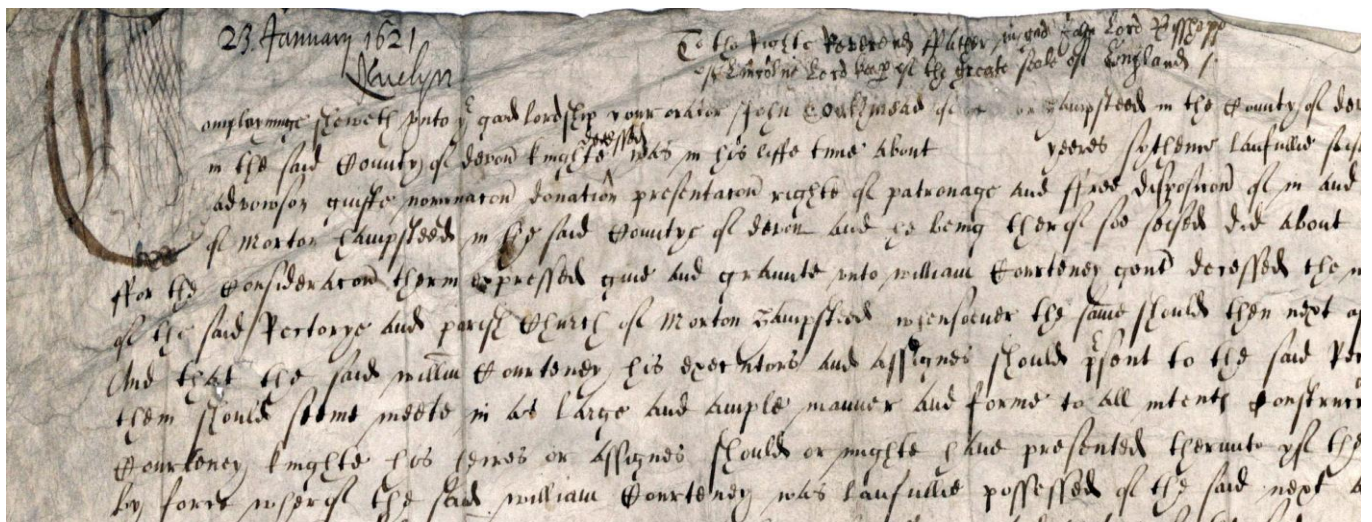 23 January 1621
To the righte Reverend ffather in god John Lord Bisshoppe
Euelyn
of Lincolne Lord keep of the greate seale of England
omplayninge sheweth vnto yr good lordship your orator John of Hampsteed in the County of dev
decessed
in the said County of devon knighte was in his liffe time about yeeres sythence laufullie seis
advowson guifte nominacon donation presentacon righte of patronage and ffree disposicon of in and
of Morton hampsteed in the said Countye of devon and he being therof soe seised did about
ffor the Consideracon therin expressed giue and graunte vnto william Courteney gent decessed the
of the said Rectorye and parish Church of Morton Hampsteed whensoeuer the same should then next
And that the said willm Courteney his executors and assignes should psent to the said Rec
them should seeme meete in as large and ample manner and forme to all intents Construcc
Courteney knighte his heires or assignes should or mighte haue presented therunto yf the
by force wherof the said william Courteney was laufullie possessed of the said next